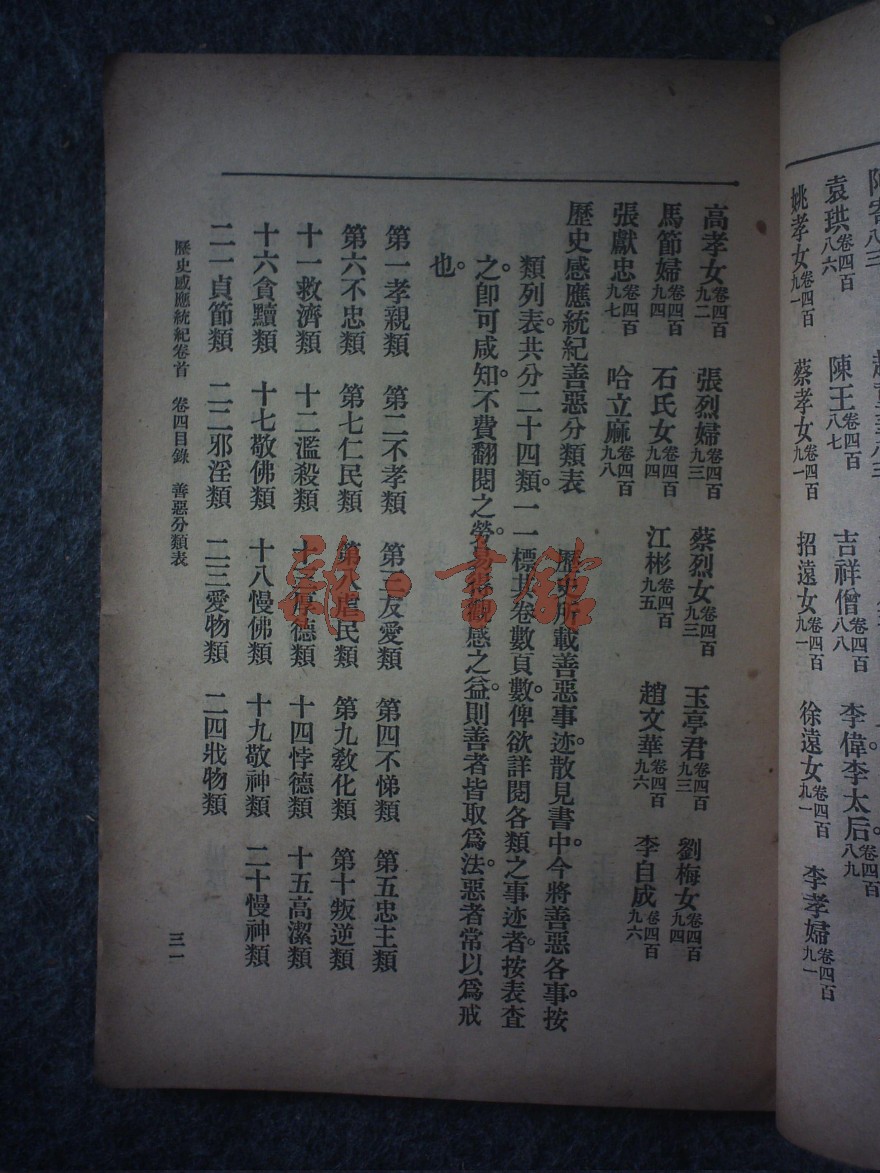 袁珙卷四百八六 陳王卷四百八七 吉祥僧卷四百八八 李偉李太后卷四百八九
姚孝女卷四百九一 蔡孝女卷四百九一 招遠女卷四百九一 徐遠女卷四百九一 李孝婦卷四百九一
高孝女卷四百九二 張烈婦卷四百九三 蔡烈女卷四百九三 玉亭君卷四百九三 劉梅女卷四百九四
馬節婦卷四百九四 石氏女卷四百九四 江彬卷四百九五 趙文華卷四百九六 李自成卷四百九六
張獻忠卷四百九七 哈立麻卷四百九八
歷史感應統紀善惡分類表 歷史所載善惡事迹。散見書中。今將善惡各事。按
類列表。共分二十四類。一一標其卷數頁數。俾欲詳閱各類之事迹者。按表查
之。即可咸知。不費翻閱之勞。易得觀感之益。則善者皆取爲法。惡者常以爲戒
也。
第一孝親類 第二不孝類 第三友愛類 第四不悌類 第五忠主類
第六不忠類 第七仁民類 第八虐民類 第九教化類 第十叛逆類
十一救濟類 十二濫殺類 十三厚德類 十四悖德類 十五高潔類
十六貪黷類 十七敬佛類 十八慢佛類 十九敬神類 二十慢神類
二一貞節類 二二邪淫類 二三愛物類 二四戕物類
歷史感應統紀卷首 卷四目錄 善惡分類表 三一
雜。書館